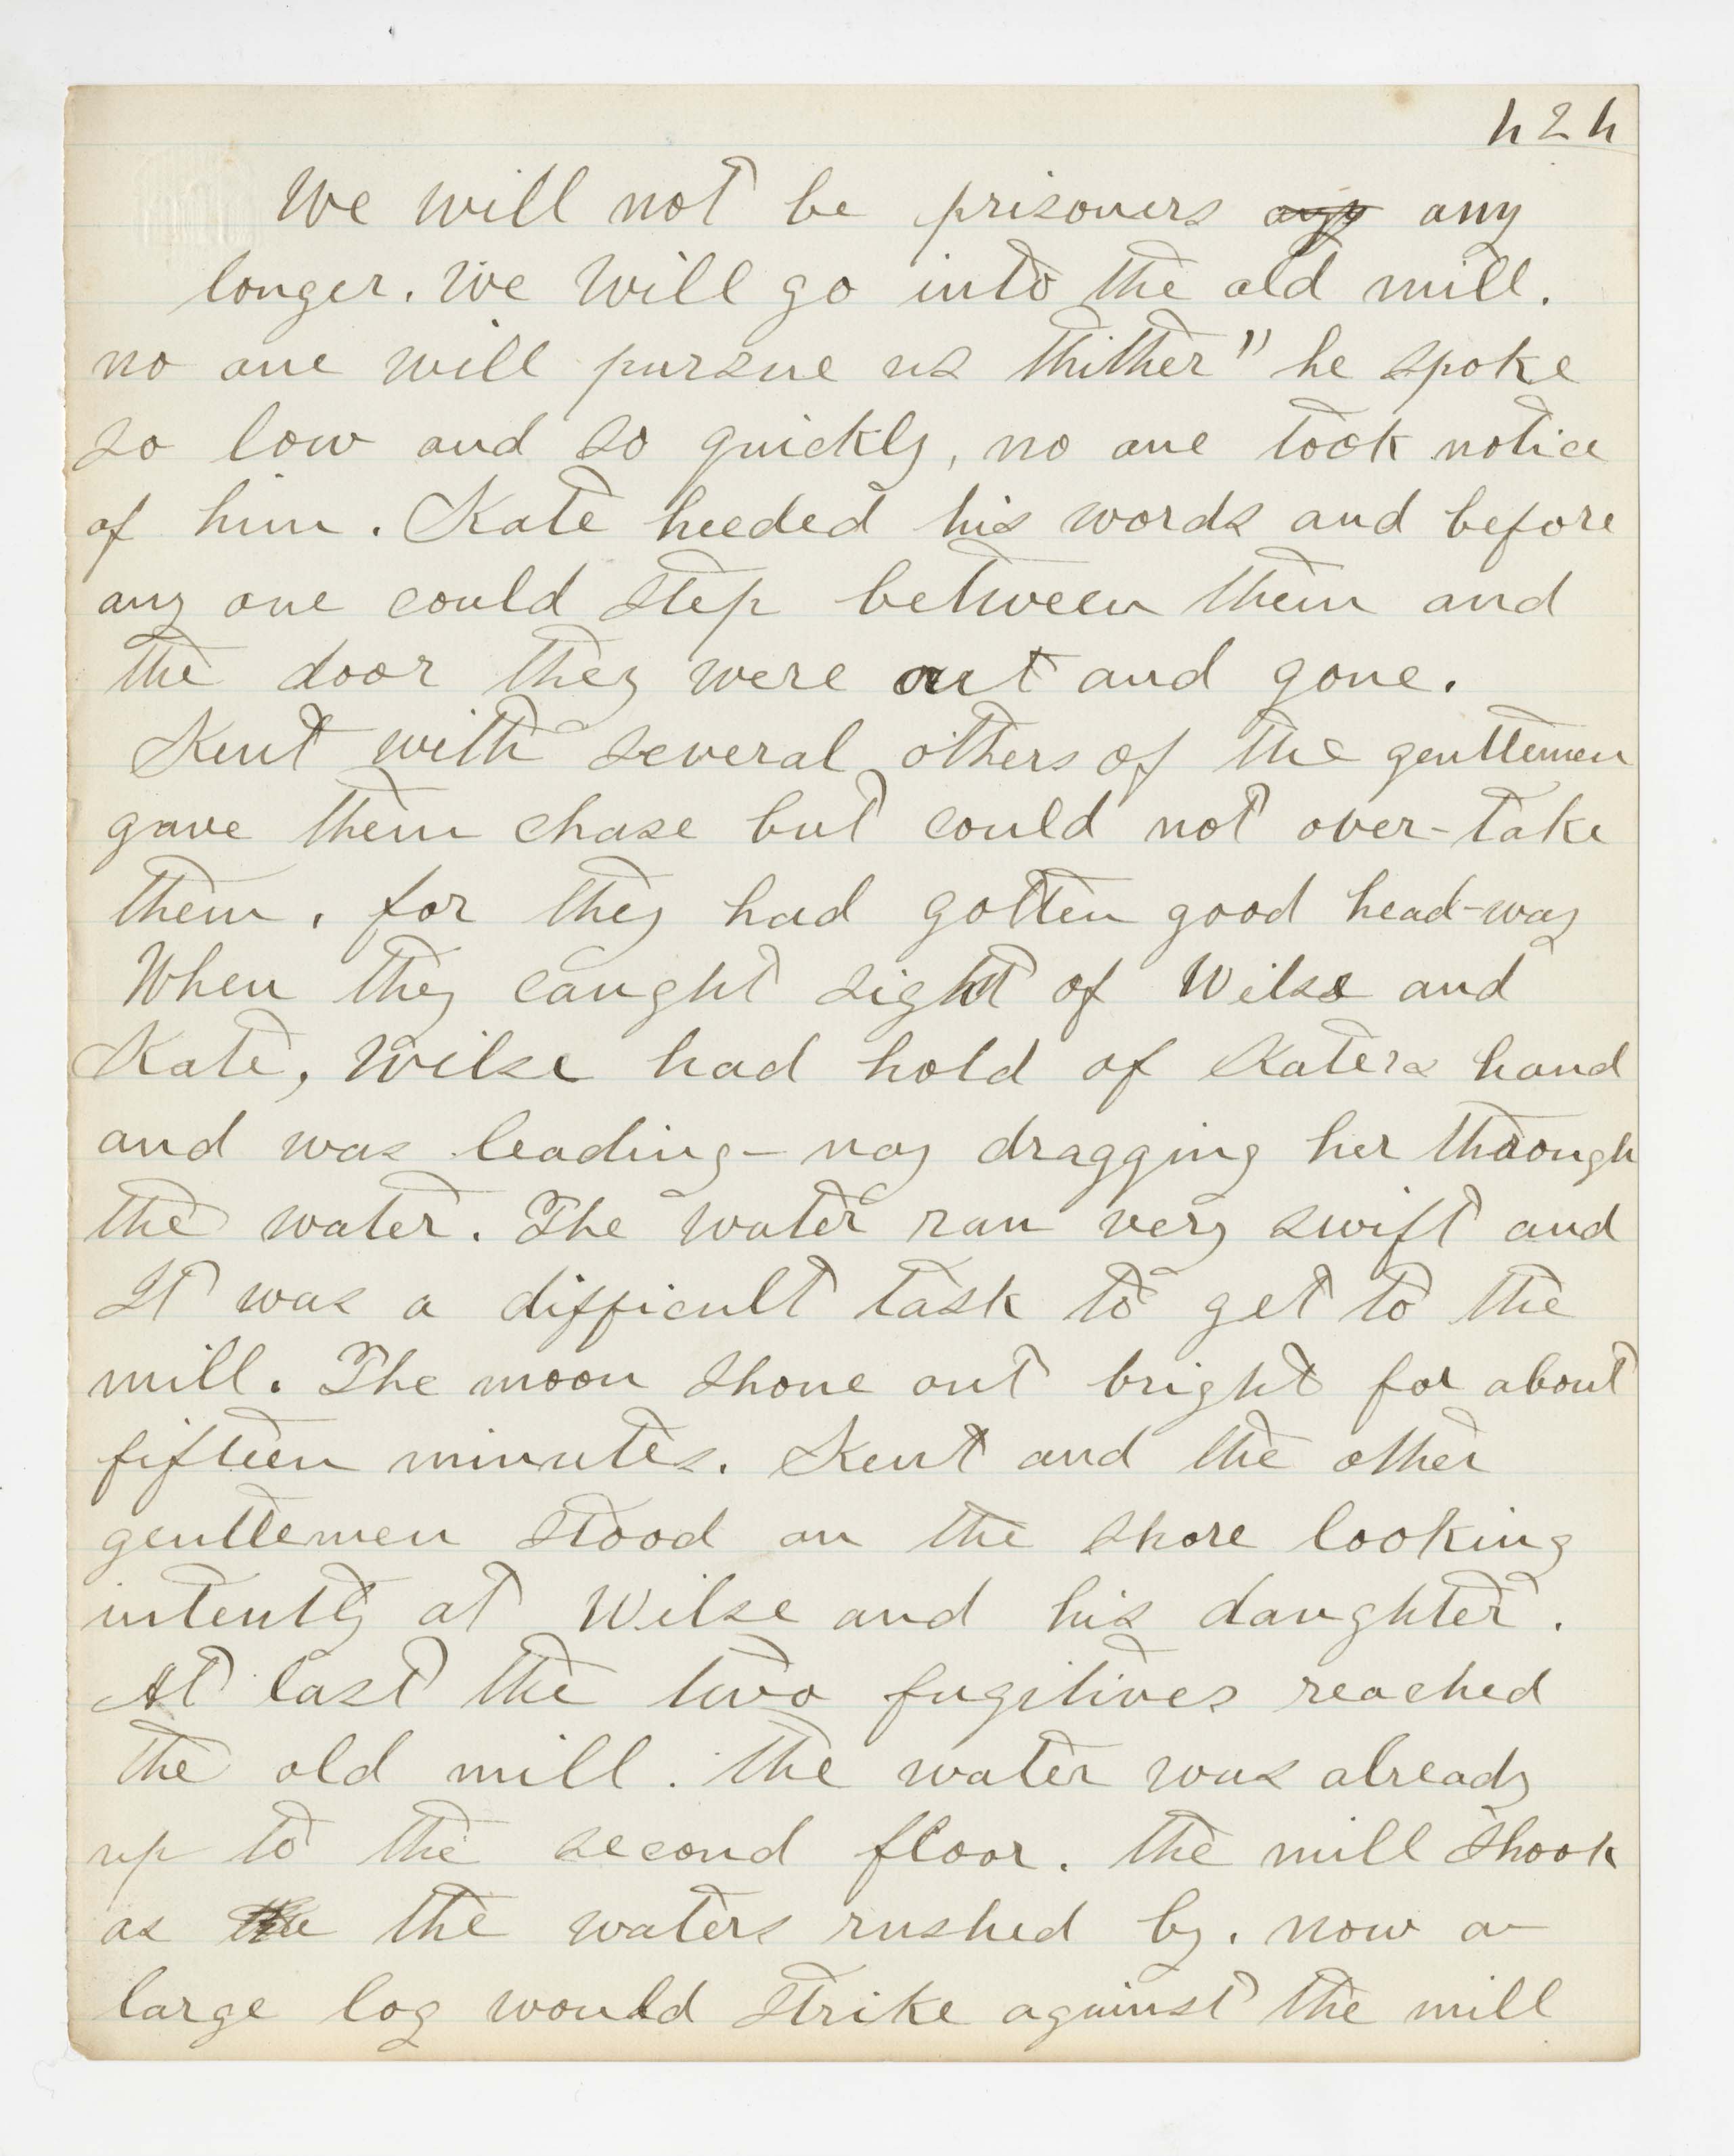 424
We will not be prisoners any any
longer. We will go into the old mill.
no one will pursue us thither" he spoke
so low and so quickly, no one took notice
of him. Kate heeded his words and before
any one could step between them and
the door they were out and gone.
Kent with several others of the genttemen
gave them chase but could not over-take
them. for they had gotten good head-way
When they caught sight of Wilse and
Kate, Wilse had hold of Katers hand
and was leading - nay dragging her through
the water. The water ran very swift and
It was a difficult task to get to the
mill. The moon shone out bright for about
fifteen minutes. Kent and the other
genttemen stood on the shore looking
intently at Wilse and his daughter.
At last the two fugitives reached
the old mill. The water was already
up to the second floor. The mill shook
as the the waters rushed by. now a
large log would strike against the mill